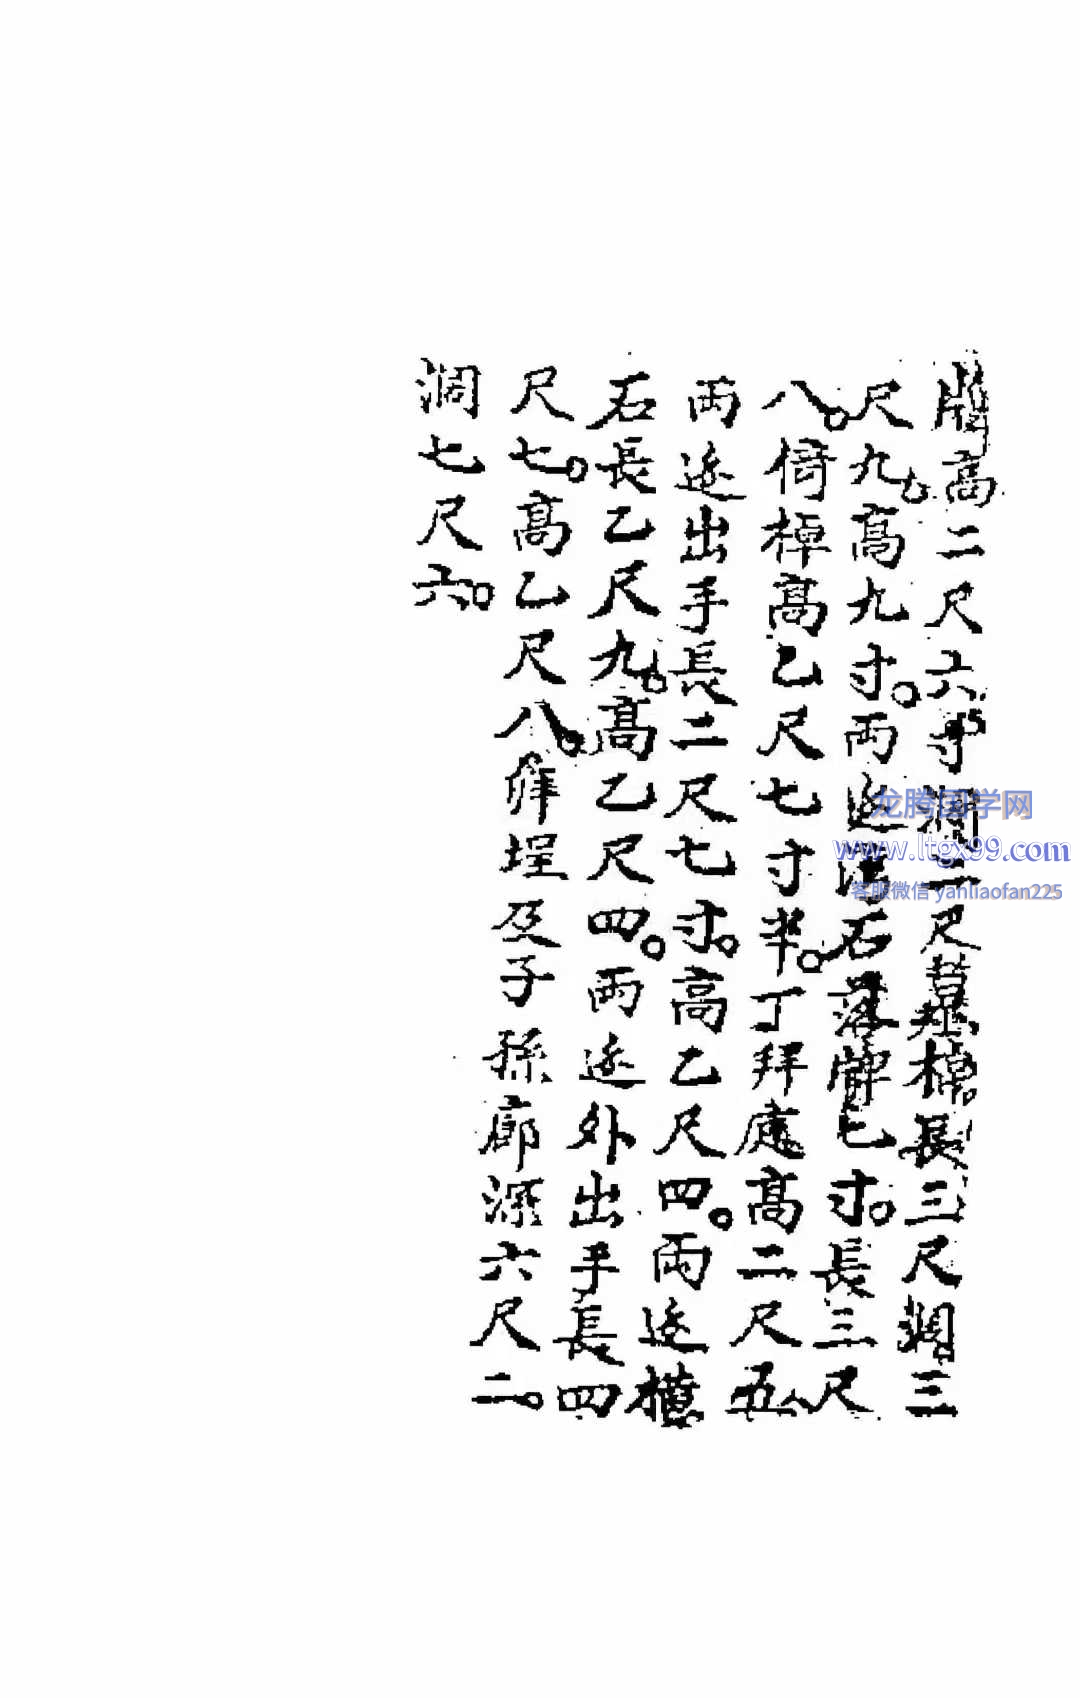 牌高二尺六寸濶二尺墓棹長三尺濶三
尺九七高九寸。両邊石落牌七寸。長三尺
八。倚棹高乙尺七寸半。丁拜處高二尺五
両邊出手長二尺七寸。高乙尺四。両邊横
石長乙尺九七高乙尺四。両邊外出手長四
尺七。高乙尺八。拜埕及子孫廊深六尺二。
濶七尺六。
龙腾国学网
www.ltgx99.com
客服微信 yanliaofan225